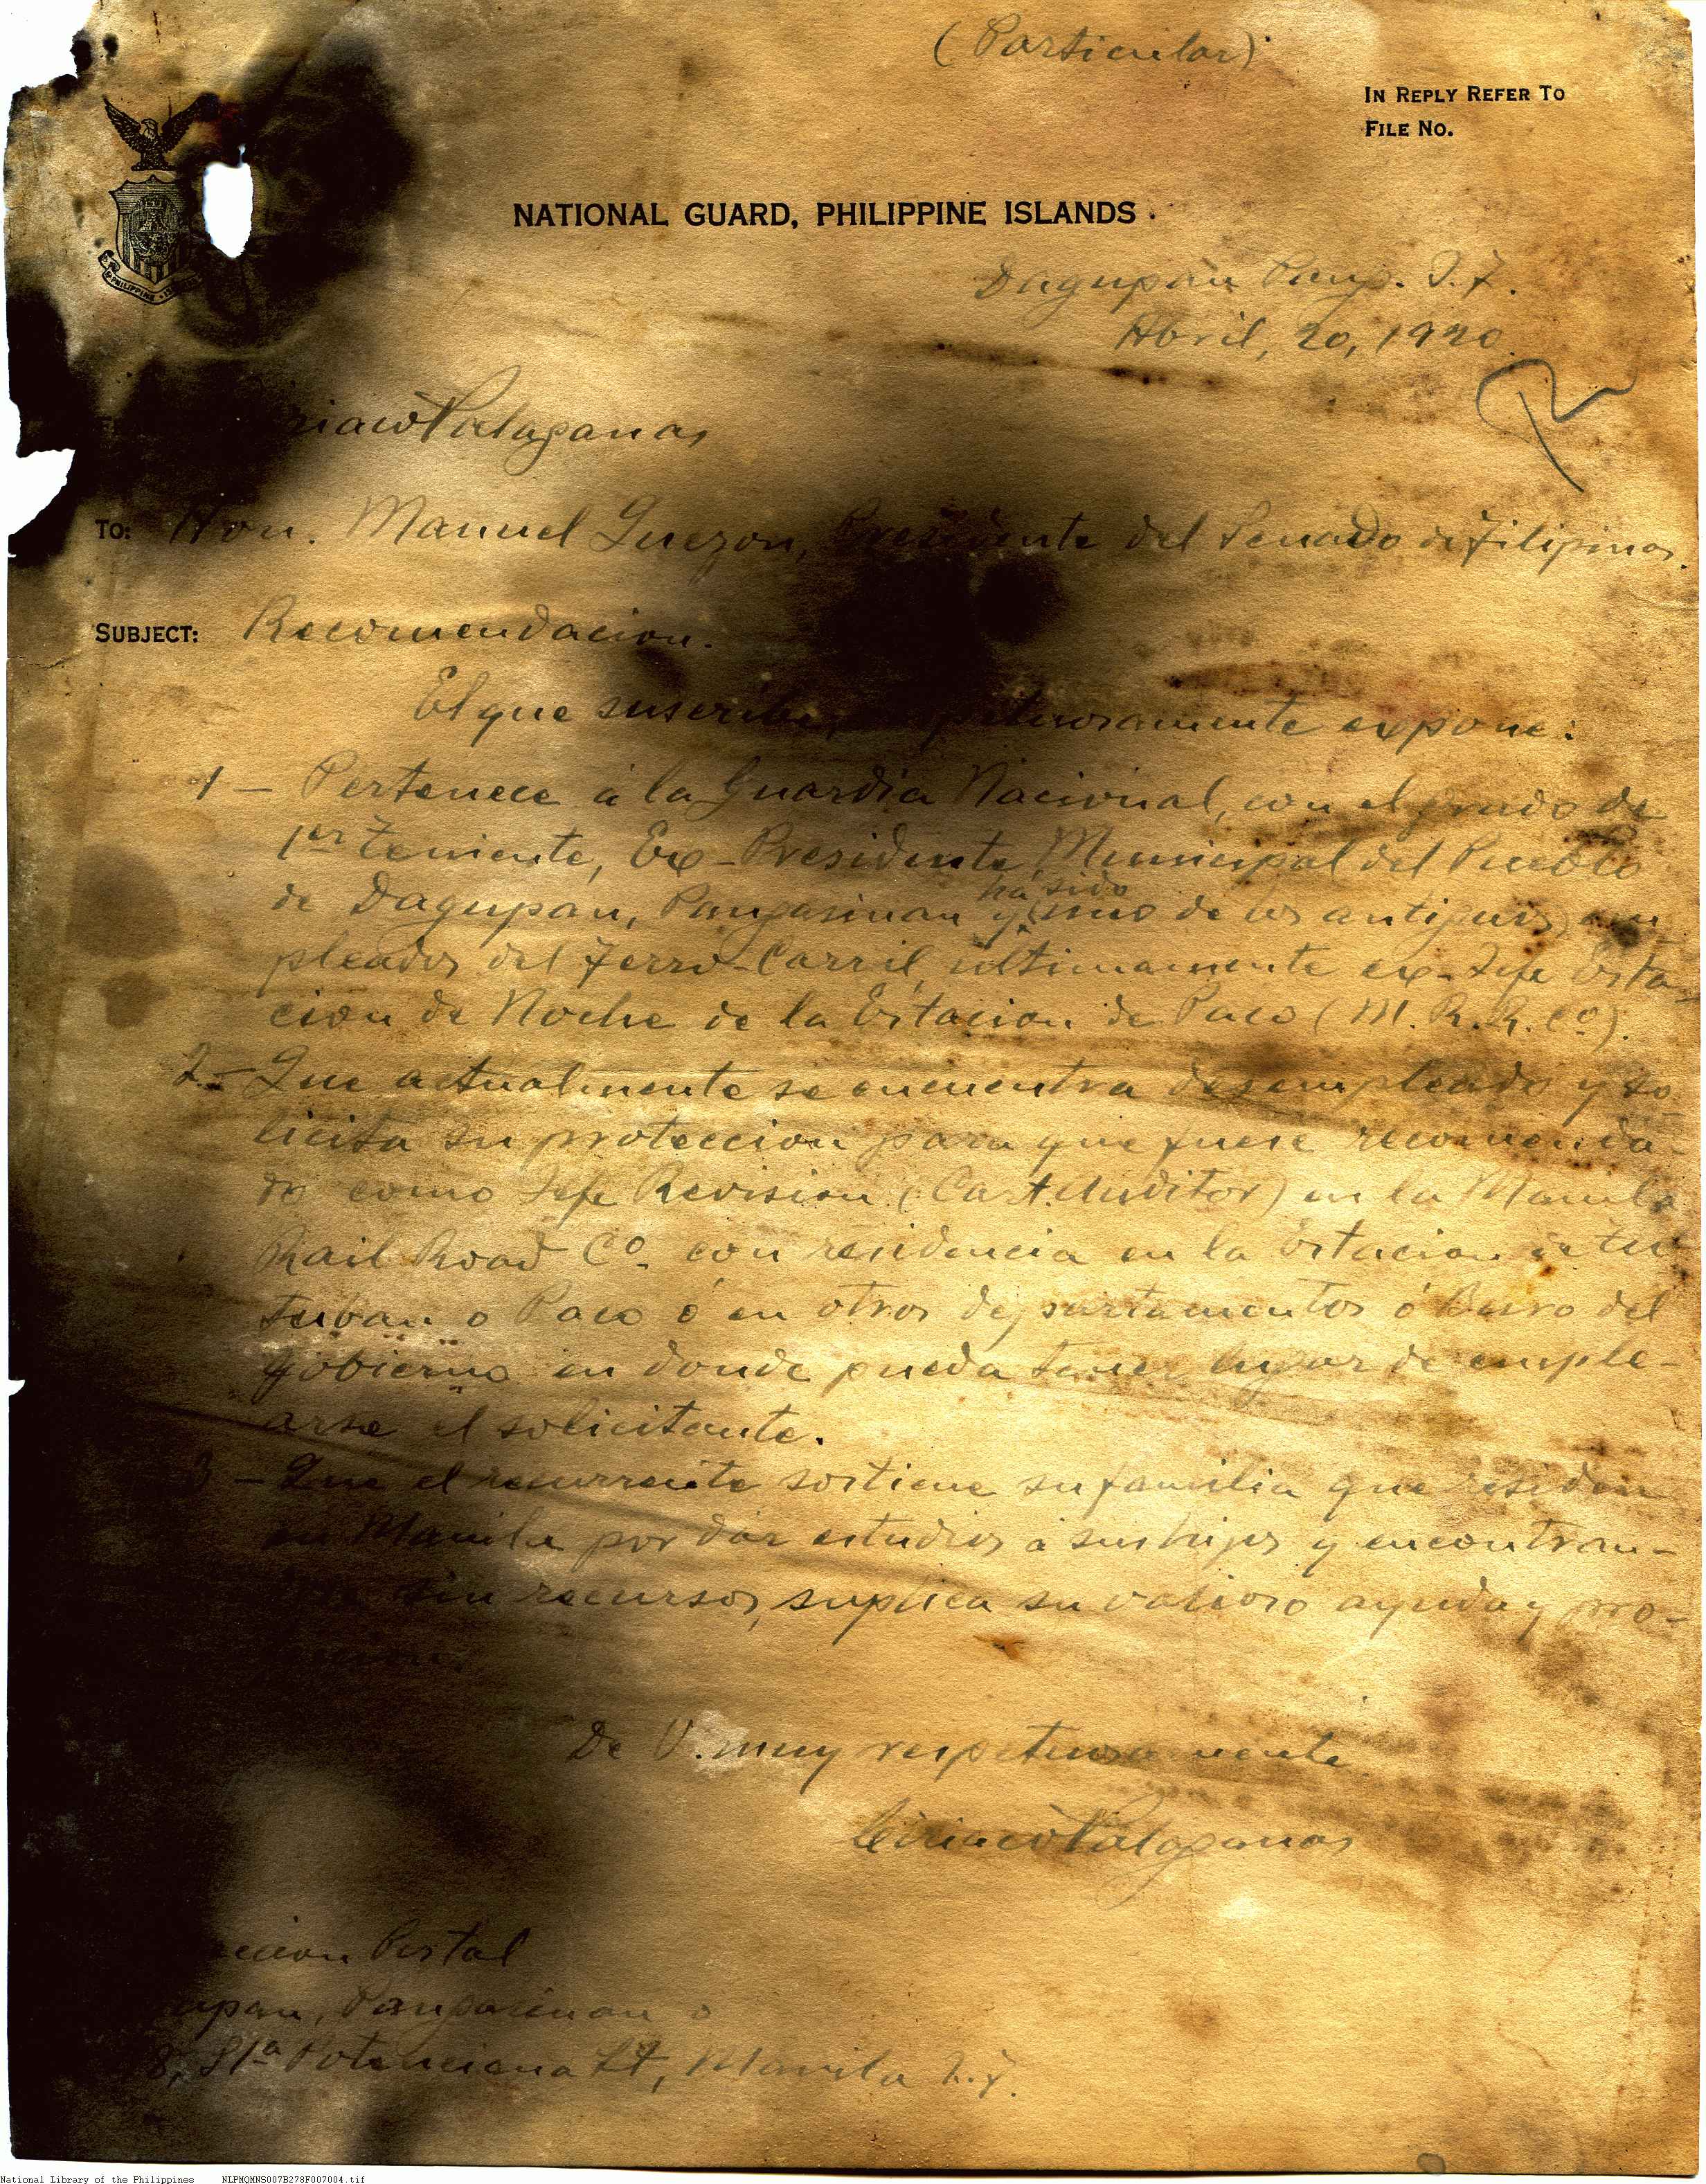 (Particular)
IN REPLY REFER TO
FILE NO.
NATIONAL GUARD, PHILIPPINE ISLANDS.
Dagupan Pang. I. F.
Abril, 20, 1920.
riaco Palaganas
TO: Hon. Manuel Quezon, Presidente del Senado de Filipinas.
SUBJECT: Recomendacion.
El que suscribe, respetuosamente expone:
1 — Pertenece á la Guardia Nacional, con el grado de
1er Teniente, Ex-Presidente Municipal del Pueblo
há sido
de Dagupan, Pangasinan y uno de los antiguos em-
pleados del Ferro-Carril, ultimamente ex-Jefe Esta-
cion de Noche de la Estacion de Paco (M. R. R. Co.).
2.— Que actualmente se encuentra desempleado y so-
licita su proteccion para que fuese recomenda-
do como Jefe Revision (Cart. Auditor) en la Manila
Rail Road Co. con residencia en la Estacion de Tu-
tuban o Paco ó en otros departamentos ó Buro del
Gobierno en donde pueda tener lugar de emple-
arse el solicitante.
3 — Que el recurrente sostiene su familia que residen
en Manila por dar estudios á sus hijos y encontran-
sin recursos, suplica su valioso ayuda y pro-
De V. muy respetuosamente
Ciriaco Palaganas
eccion Postal
upan, Pangasinan o
8, Sta Potenciana St, Manila I. F.
PHILIPPINE
National Library of the Philippines NLPMQMNS007B278F007004.tif